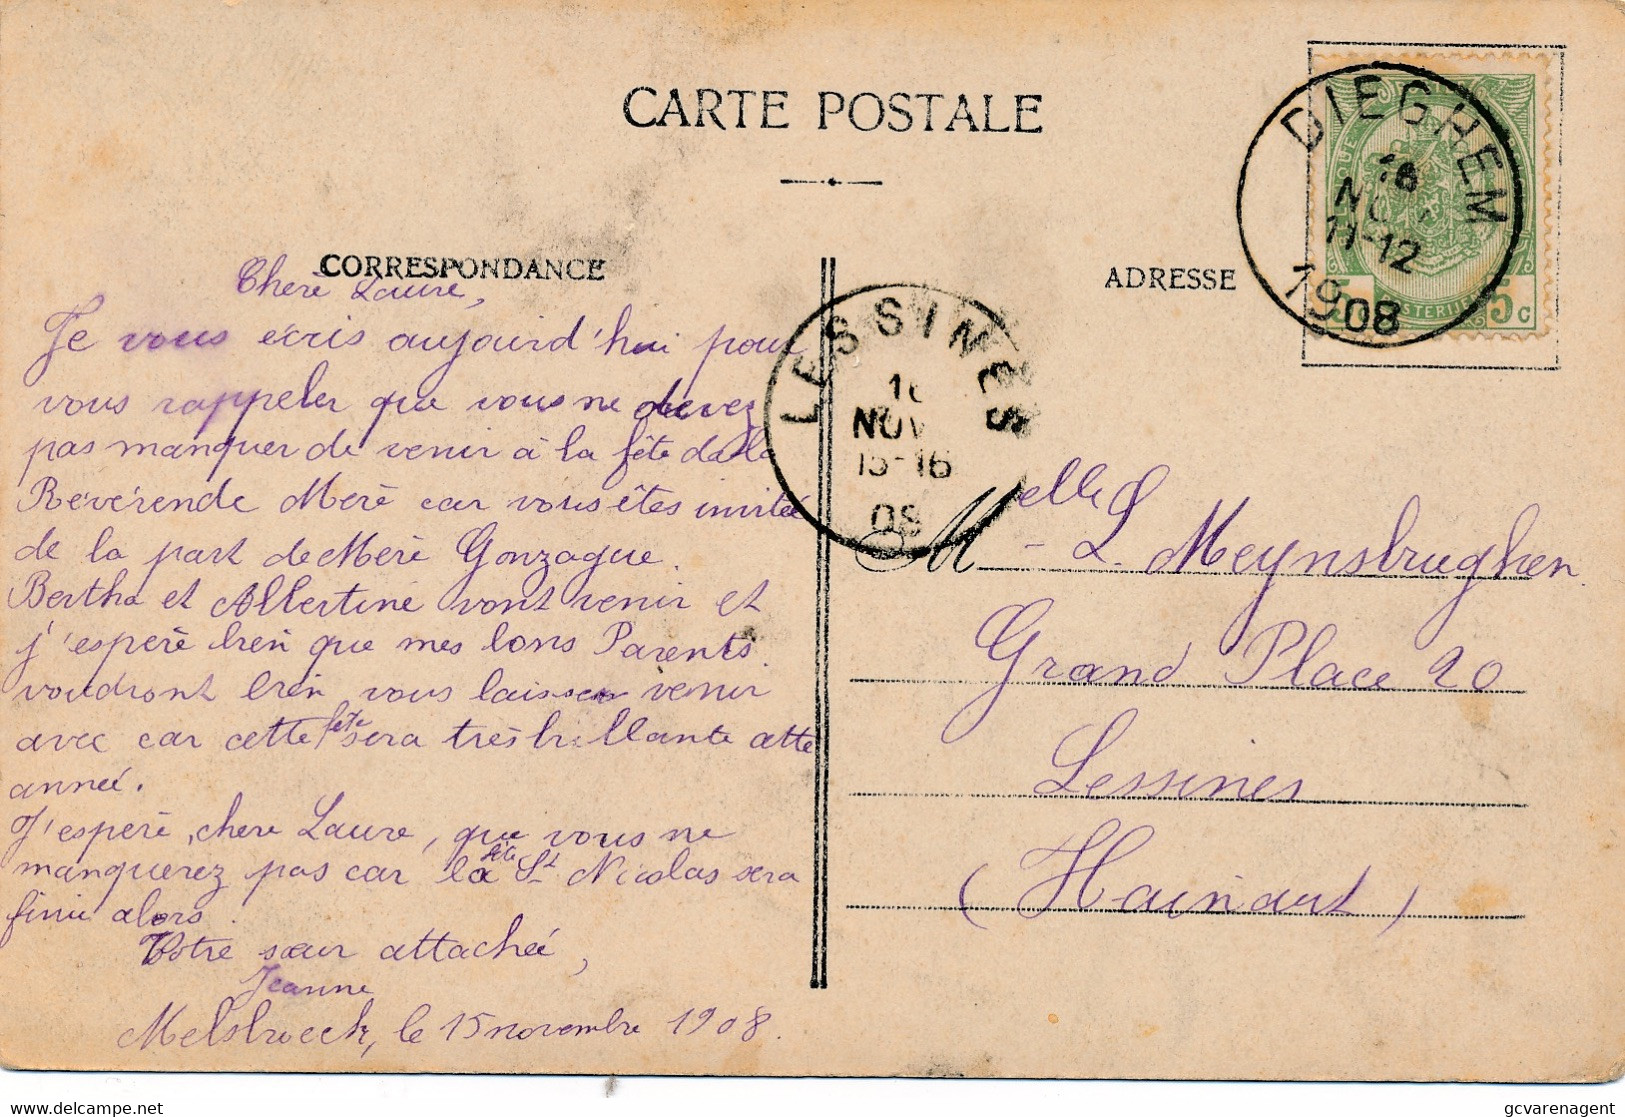 CARTE POSTALE
CORRESPONDANCE
Cherè Laure,
Je vous écris aujourd'hui pour
vous rappeler que vous ne devez
pas manquer de venir à la fête de la
Révérende Merè car vous êtes invitée
de la part de Merè Gonzague.
Bertha et Albertine vont venir et
j'esperè bien que mes bons Parents
voudront bien vous laisser venir
avec car cette fête sera très brillante cette
anneé.
J'esperè, chere Laure, que vous ne
manquerez pas car la fête St Nicolas sera
finie alors.
Votre sœur attacheé,
Jeanne
Melsbroeck, le 15 novembre 1908.
ADRESSE
Melle L. Meynsbrughen.
Grand Place 20
Lessines
(Hainaut)
DIEGHEM
16
NOV
11-12
1908
5 C
5 C
LESSINES
16
NOV
15-16
08
www.delcampe.net
gcvarenagent